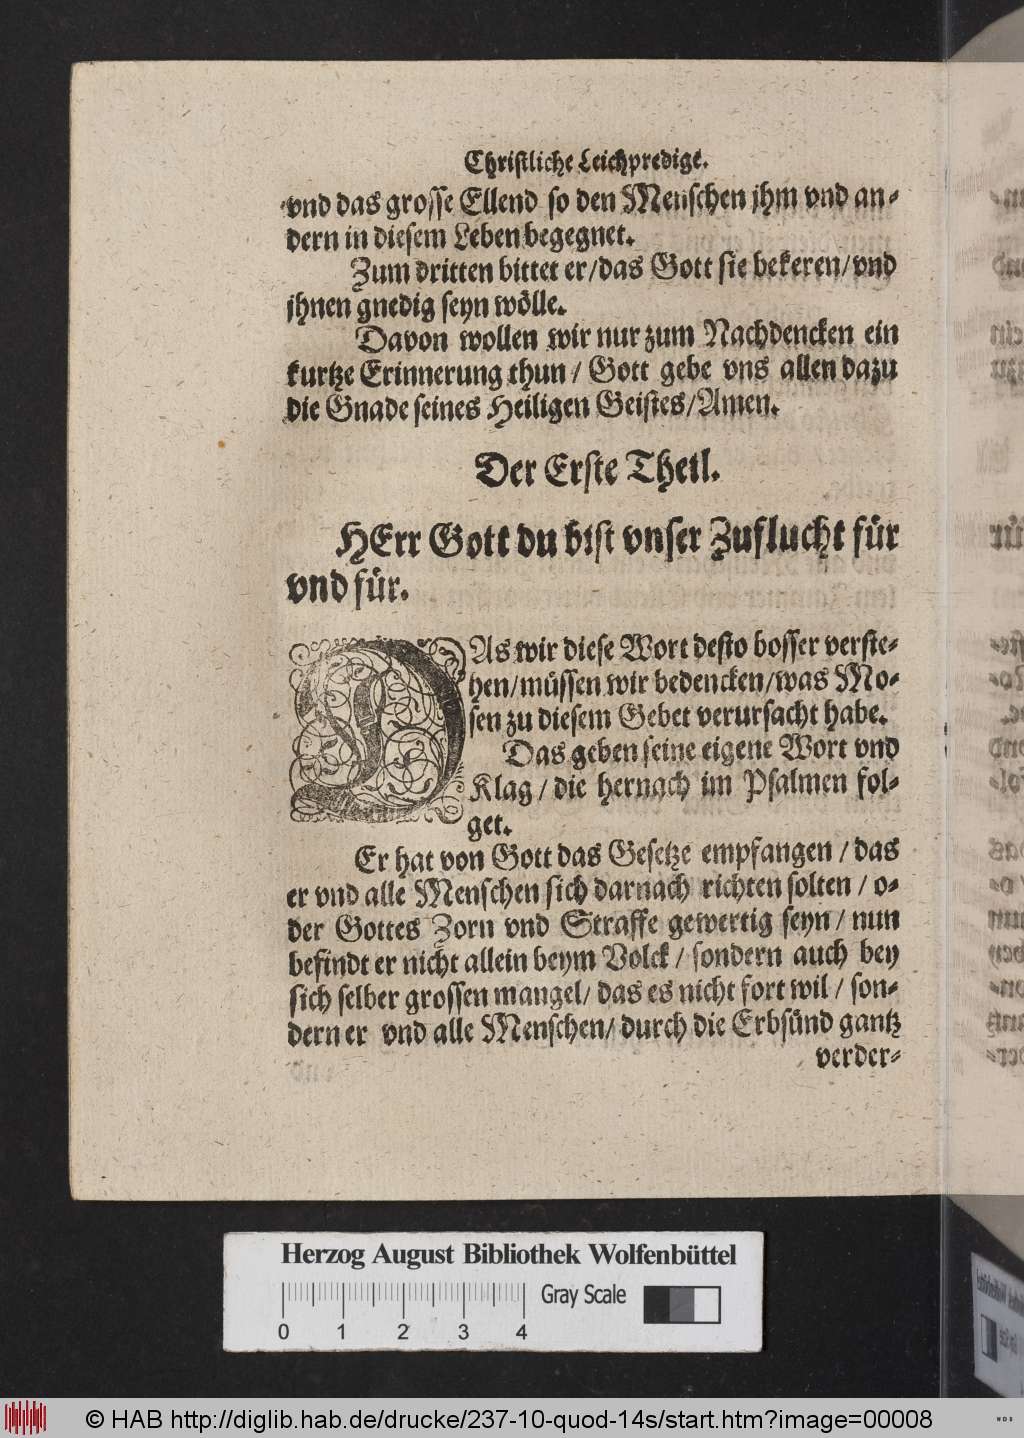 Christliche Leichpredigt.
vnd das grosse Ellend so den Menschen jhm vnd an-
dern in diesem Leben begegnet.
Zum dritten bittet er/das Gott sie bekeren/vnd
jhnen gnedig seyn wölle.
Davon wollen wir nur zum Nachdencken ein
kurtze Erinnerung thun/ Gott gebe vns allen dazu
die Gnade seines Heiligen Geistes/Amen.
Der Erste Theil.
HErr Gott du bist vnser Zuflucht für
vnd für.
DAs wir diese Wort desto bosser verste-
hen/müssen wir bedencken/was Mo-
sen zu diesem Gebet verursacht habe.
Das geben seine eigene Wort vnd
Klag/ die hernach im Psalmen fol-
get.
Er hat von Gott das Gesetze empfangen/ das
er vnd alle Menschen sich darnach richten solten/ o-
der Gottes Zorn vnd Straffe gewertig seyn/ nun
befindt er nicht allein beym Volck/ sondern auch bey
sich selber grossen mangel/ das es nicht fort wil/ son-
dern er vnd alle Menschen/ durch die Erbsünd gantz
verder-
Herzog August Bibliothek Wolfenbüttel
Gray Scale
0 1 2 3 4
© HAB http://diglib.hab.de/drucke/237-10-quod-14s/start.htm?image=00008